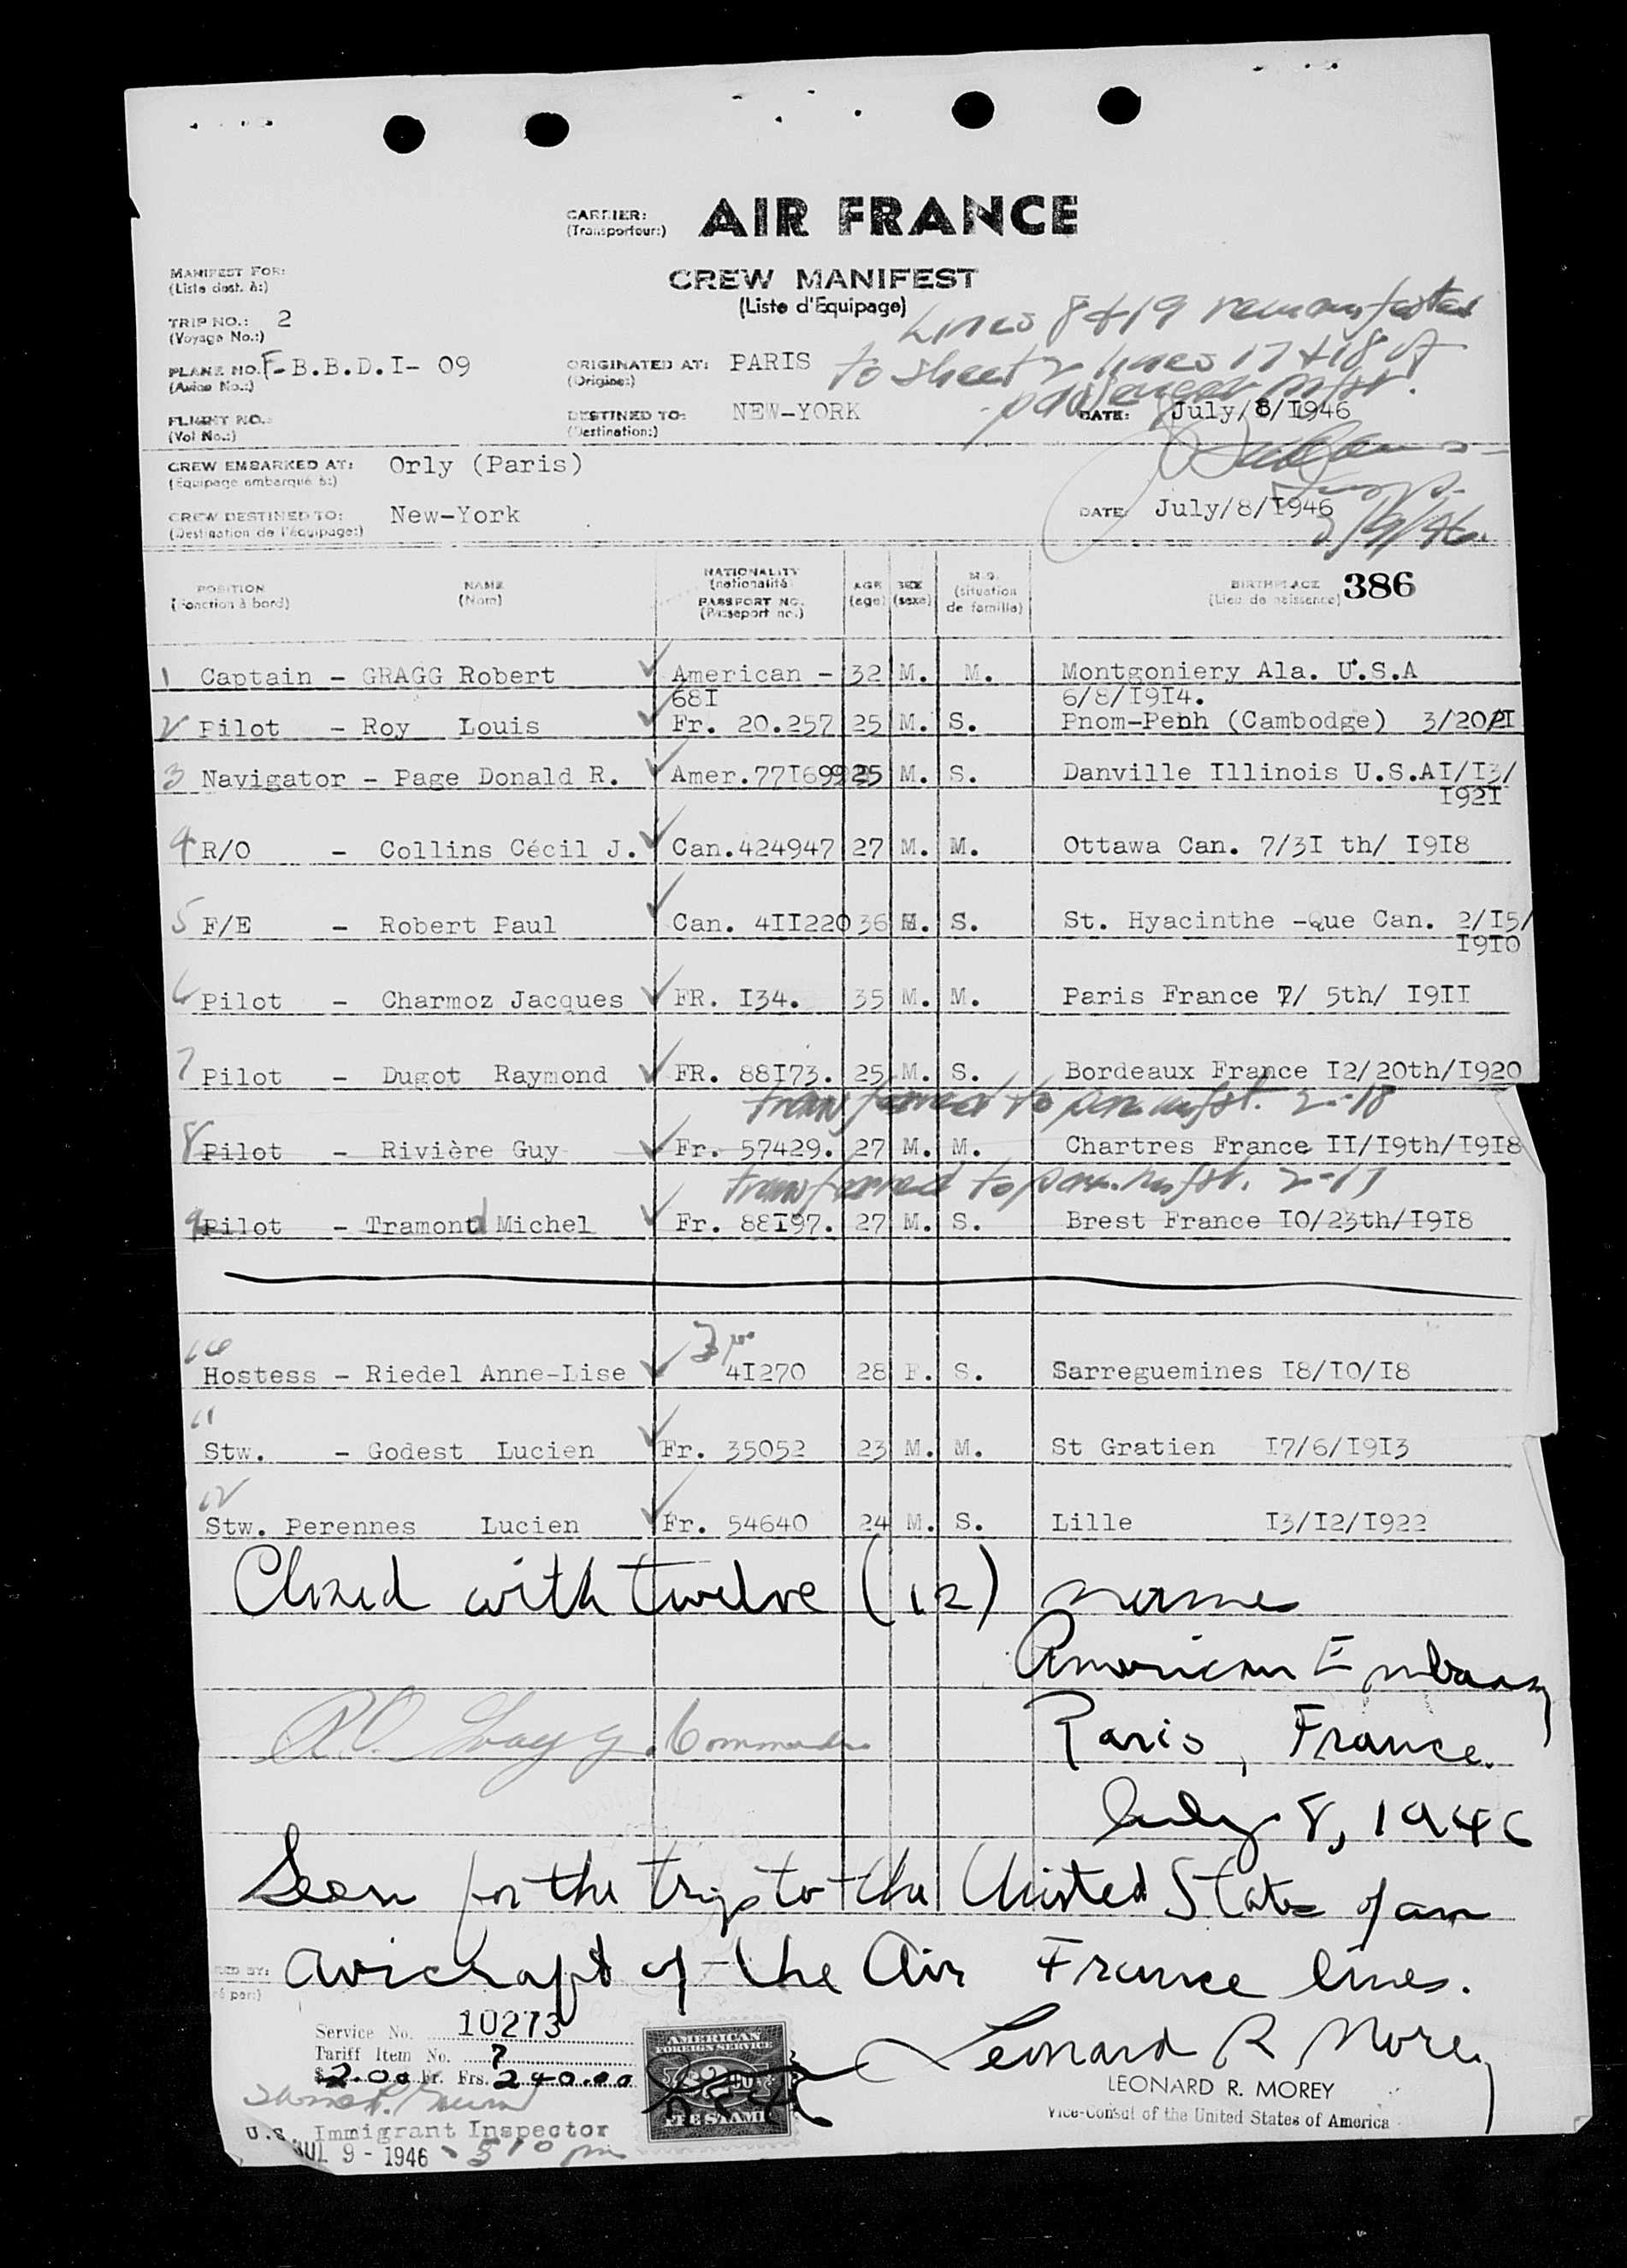 CARRIER: AIR FRANCE
(Transporteur:)
CREW MANIFEST
(Liste d'Equipage)
MANIFEST FOR:
(Liste dest. à:)
Lines 8 + 19 remanifested
to sheet 2 lines 17 + 18 of
passenger mfst.
TRIP NO.: 2
(Voyage No.:)
PLANE NO. F-B.B.D.I- 09
(Avion No.:)
ORIGINATED AT: PARIS
(Origine:)
FLIGHT NO.:
(Vol No.:)
DESTINED TO: NEW-YORK
(Destination:)
DATE: July/8/I946
CREW EMBARKED AT: Orly (Paris)
(Equipage embarqué à:)
CREW DESTINED TO: New-York
(Destination de l'équipage:)
DATE: July/8/I946
Insp.
7/9/46.
POSITION NAME NATIONALITY AGE SEX M.S. BIRTHPLACE 386
(Fonction à bord) (Nom) (nationalité) (age) (sexe) (situation de famille) (Lieu de naissance)
PASSPORT NO.
(Passeport no.)
1 Captain - GRAGG Robert American - 32 M. M. Montgoniery Ala. U.S.A
68I 6/8/I9I4.
2 Pilot - Roy Louis Fr. 20.257 25 M. S. Pnom-Penh (Cambodge) 3/20/2I
3 Navigator - Page Donald R. Amer.77I699 25 M. S. Danville Illinois U.S.AI/I3/
I92I
4 R/O - Collins Cécil J. Can.424947 27 M. M. Ottawa Can. 7/3I th/ I9I8
5 F/E - Robert Paul Can. 4II220 36 M. S. St. Hyacinthe -Que Can. 2/I5/
I9I0
6 Pilot - Charmoz Jacques FR. I34. 35 M. M. Paris France 7/ 5th/ I9II
7 Pilot - Dugot Raymond FR. 88I73. 25 M. S. Bordeaux France I2/20th/I920
transferred to pas. mfst. 2-18
8 Pilot - Rivière Guy Fr. 57429. 27 M. M. Chartres France II/I9th/I9I8
transferred to pas. mfst. 2-17
9 Pilot - Tramond Michel Fr. 88I97. 27 M. S. Brest France I0/23th/I9I8
10
Hostess - Riedel Anne-Lise Fr. 4I270 28 F. S. Sarreguemines I8/I0/I8
11
Stw. - Godest Lucien Fr. 35052 23 M. M. St Gratien I7/6/I9I3
12
Stw. Perennes Lucien Fr. 54640 24 M. S. Lille I3/I2/I922
Closed with twelve (12) names
American Embassy
R.O. Gragg. Commander
Paris, France.
July 8, 1946
Seen for the trip to the United States of an
avicraft of the Air France lines.
Service No. 10273
Tariff Item No. 7
$ 2.00 Fr. Frs. 240.00
AMERICAN
FOREIGN SERVICE
$2.00
FEE STAMP
Leonard R Morey
LEONARD R. MOREY
Vice-Consul of the United States of America
U.S. Immigrant Inspector
JUL 9 - 1946 - 510 pm